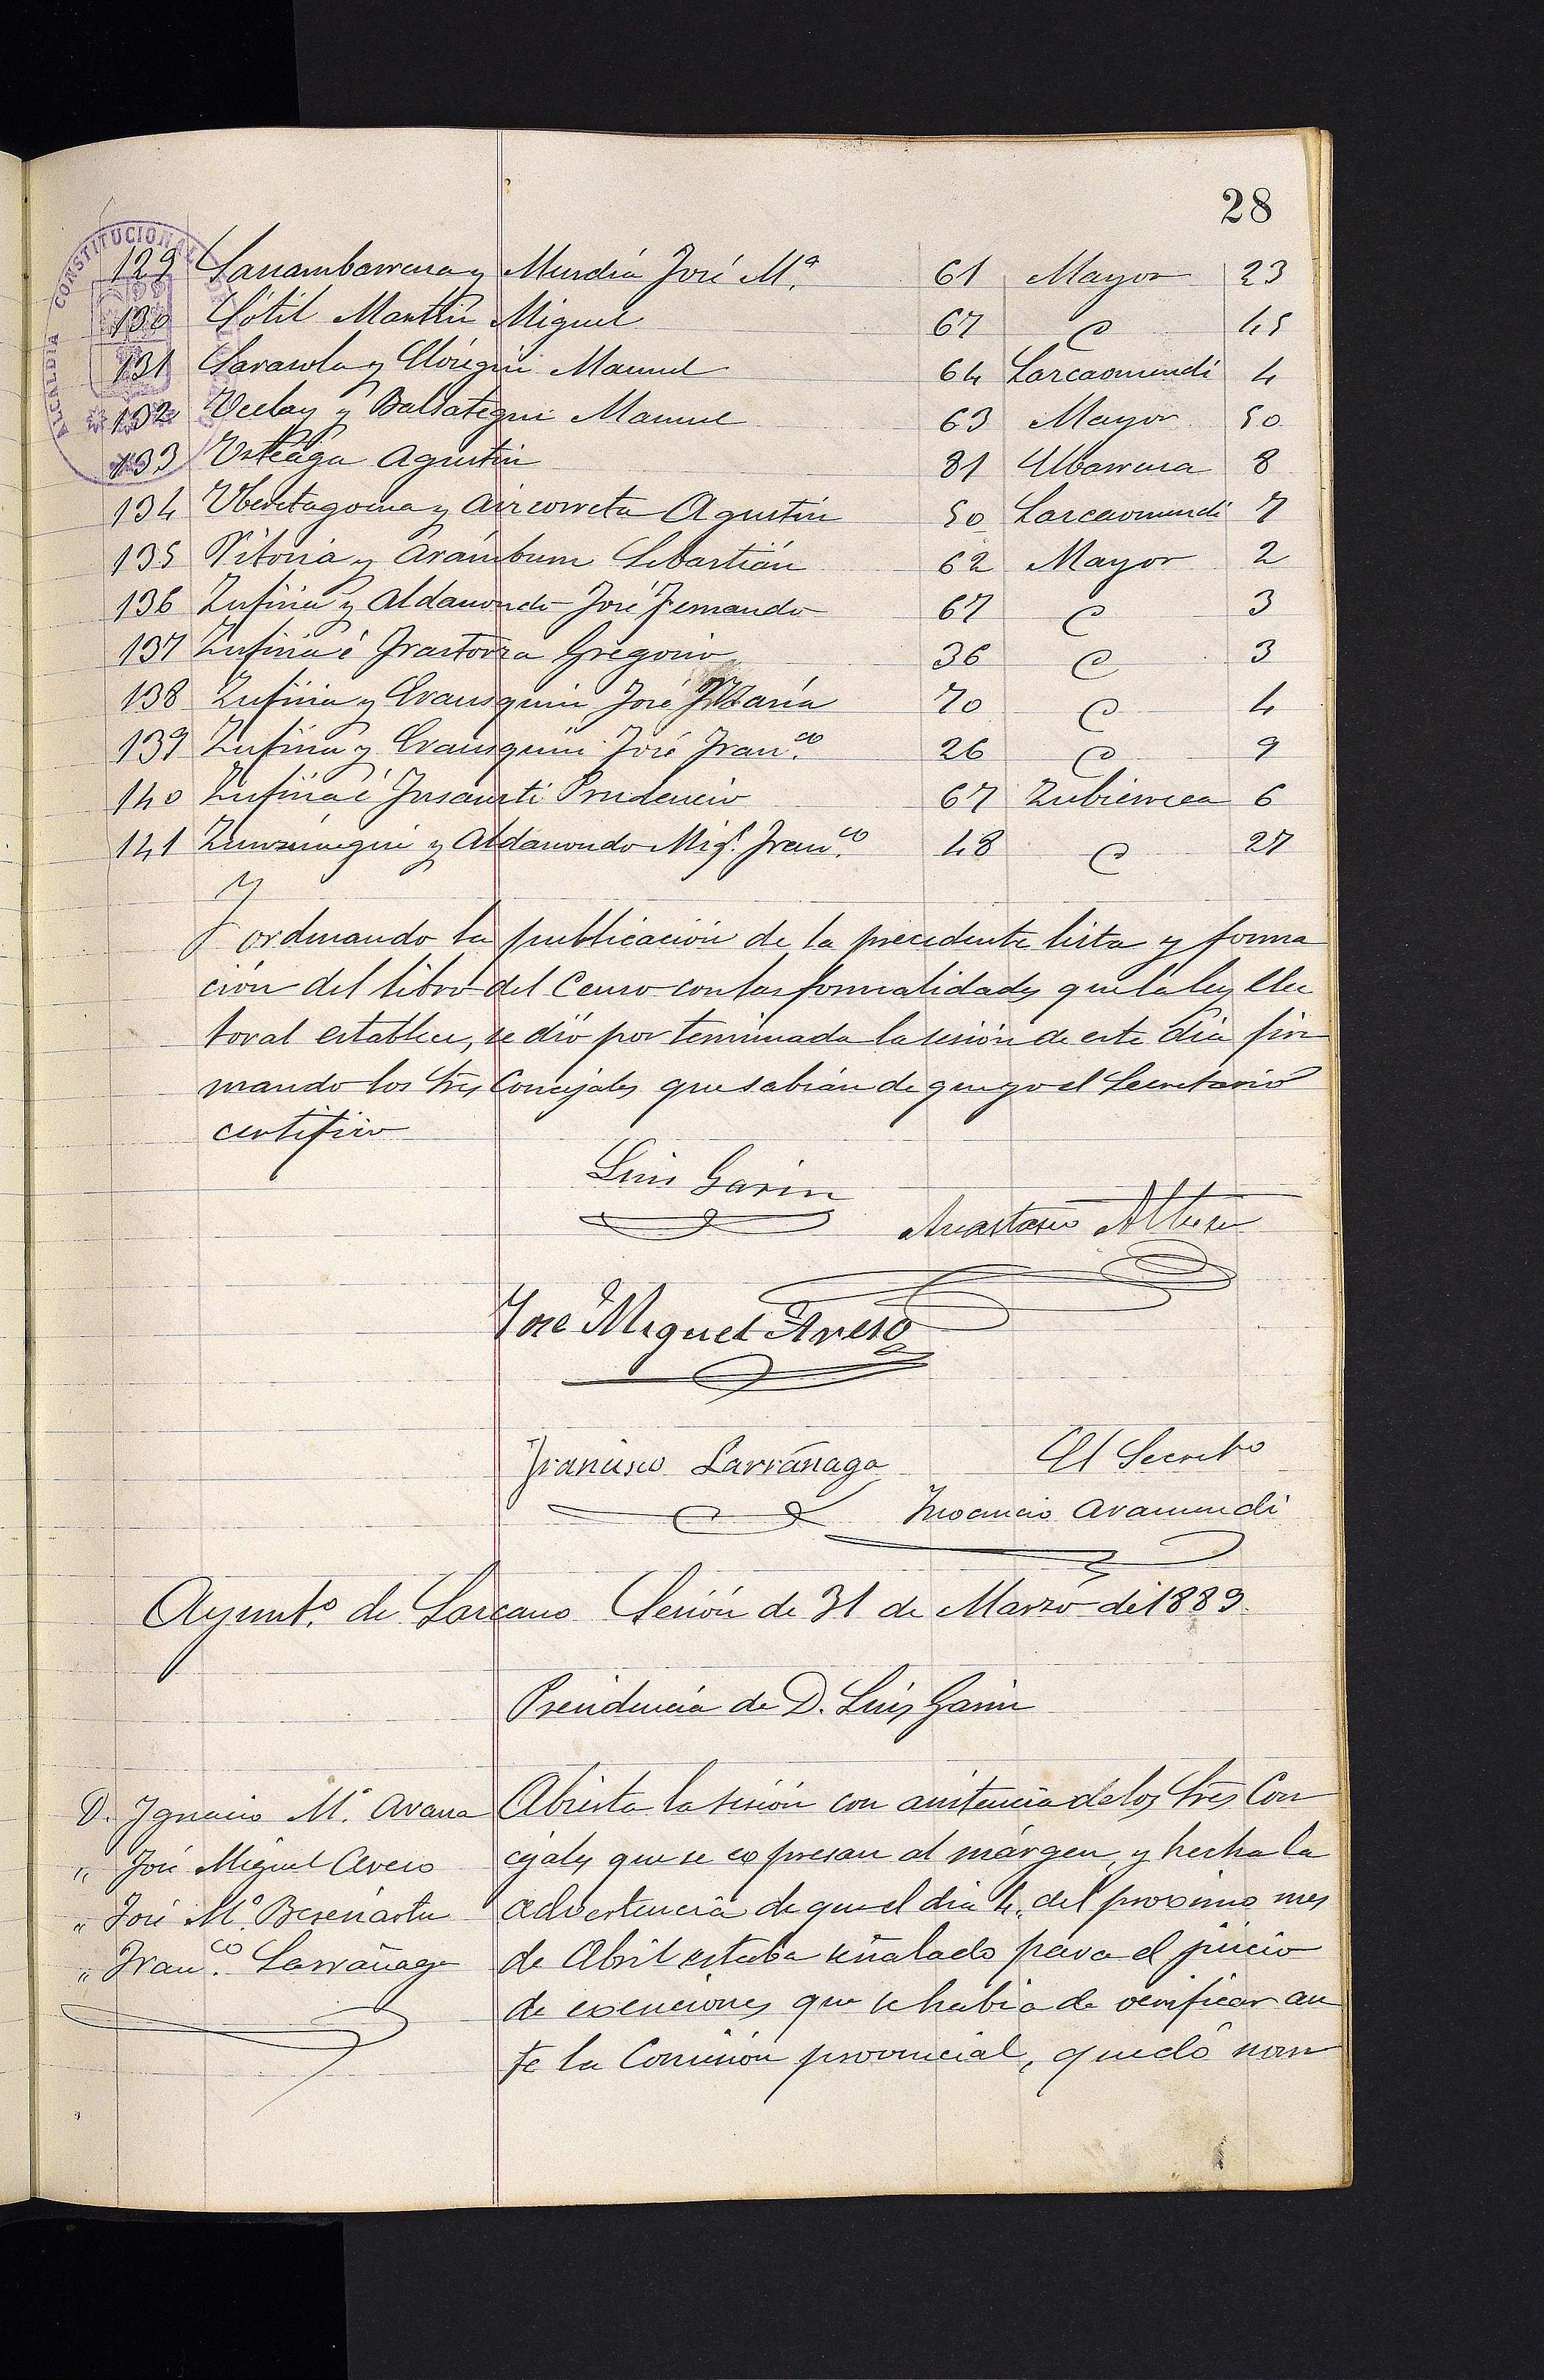 28
ALCALDIA CONSTITUCIONAL DE
129 Sarrambarrena y Murdia José Mª 61 Mayor 23
130 Sótil Marthin Miguel 67 " 45
131 Sarasola y Elóregui Manuel 64 Larcaomendi 4
132 Ucelay y Balsategui Manuel 63 Mayor 50
133 Urteaga Agustin 81 Elbarrena 8
134 Uberetagoena y Aircorreta Agustin 50 Larcaomendi 7
135 Vitoria y Arámburu Sebastián 62 Mayor 2
136 Zufiria y Aldanondo José Fernando 67 " 3
137 Zufiria é Irastorza Gregorio 36 " 3
138 Zufiria y Erausquin José María 70 " 4
139 Zufiria y Erausquin José Franco. 26 " 9
140 Zufiria é Insausti Prudencio 67 Zubierrea 6
141 Zunzunegui y Aldanondo Migl. Franco. 48 " 27
Y
ordenando la publicación de la precedente lista y forma
ción del libro del Censo con las formalidades que la ley elec
toral establece, se dió por terminada la sesión de este dia fir
mando los Sres Concejales que sabian de que yo el Secretario
certifico
Luis Garin
Anastasio Altuna
José Miguel Areso
Francisco Larrañaga
El Secreto
Inocencio Aramendi
Ayunto. de Lazcano Sesión de 31 de Marzo de 1889.
Presidencia de D. Luis Garin
D. Ignacio Mª. Arana
" José Miguel Areso
" José Mª. Beseriartu
" Franco. Larrañaga
Abierta la sesión con asistencia de los Sres Con
cejales que se expresan al márgen, y hecha la
advertencia de que el dia 4. del proximo mes
de Abril estaba señalado para el juicio
de exenciones que se habia de verificar an
te la Comisión provincial, quedó nom